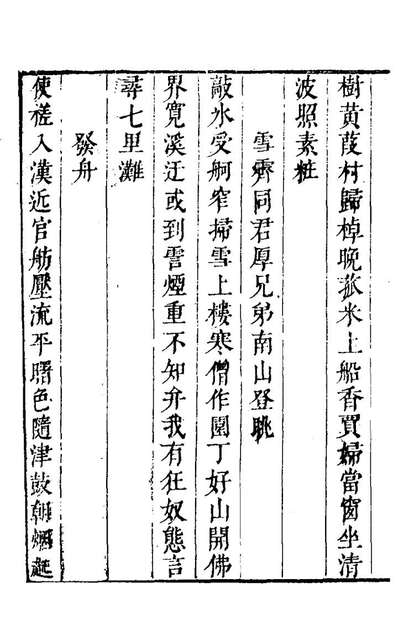 樹黄葭村歸棹晚菰米上船香賈婦當窗坐清
波照素粧
雪霽同君厚兄弟南山登眺
敲氷受舸窄掃雪上樓寒僧作園丁好山開佛
界寛溪迂或到雲煙重不知弁我有狂奴態言
尋七里灘
發舟
使槎入漢近官舫壓流平曙色隨津鼓朝煙起